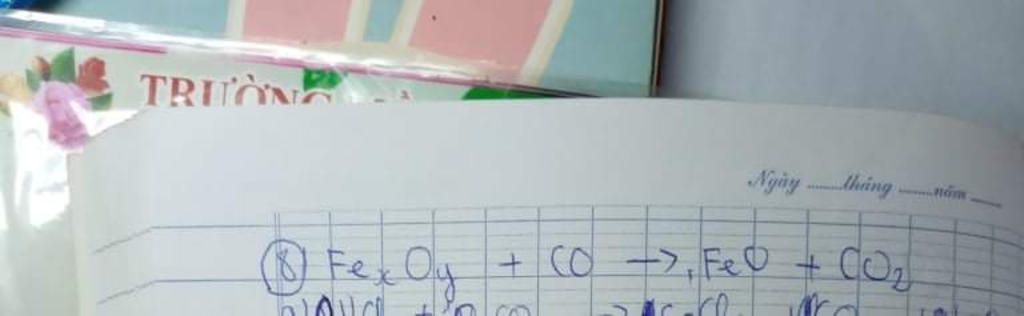 TRƯỜNG
Ngày ........tháng ........năm ____
⑧ FeₓOy + CO → FeO + CO₂